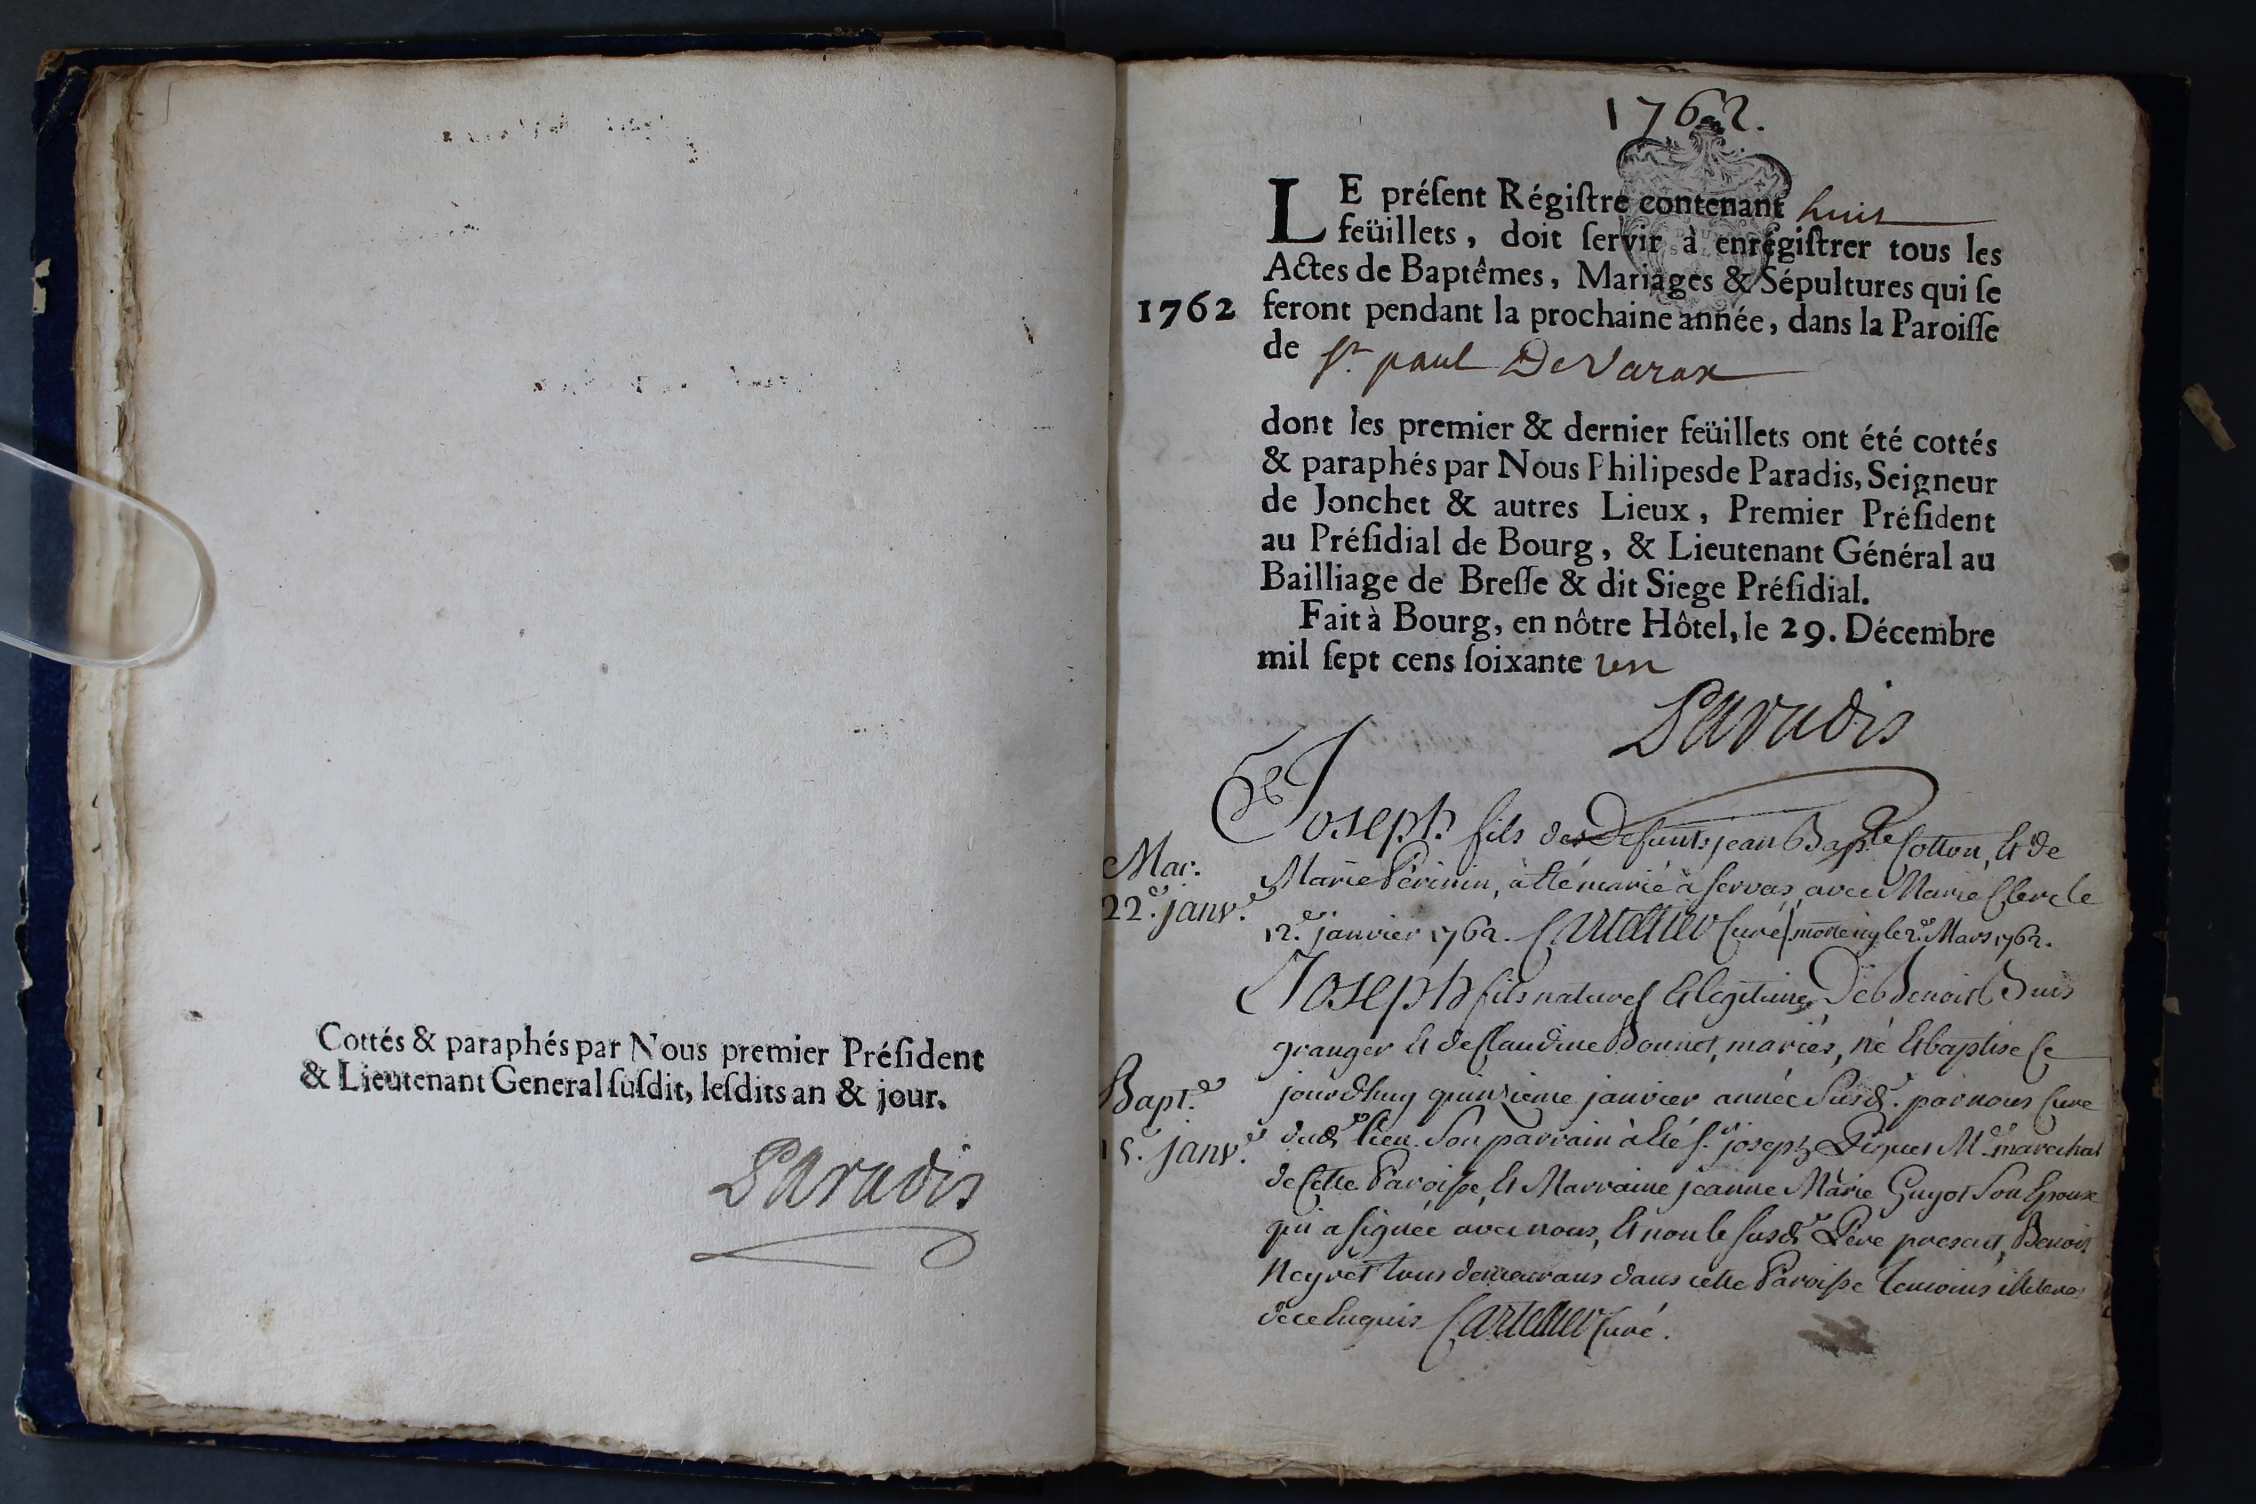 Cottés & paraphés par Nous premier Préſident
& Lieutenant General ſuſdit, leſdits an & jour.
Paradis
1762.
LE préſent Régiſtre contenant huit
feüillets, doit ſervir à enrégiſtrer tous les
Actes de Baptêmes, Mariages & Sépultures qui ſe
1762 feront pendant la prochaine année, dans la Paroiſſe
de St. paul De Varax
dont les premier & dernier feüillets ont été cottés
& paraphés par Nous Philipes de Paradis, Seigneur
de Jonchet & autres Lieux, Premier Préſident
au Préſidial de Bourg, & Lieutenant Général au
Bailliage de Breſſe & dit Siege Préſidial.
Fait à Bourg, en nôtre Hôtel, le 29. Décembre
mil ſept cens ſoixante un
Paradis
Joseph fils des Defunts jean Bapte Cotton, et de
Mar. Marie Perinin, à été marié à servas, avec Marie Clerc le
22e. janv.
12e. janvier 1762. Cartellier Curé /. morte icy le 2e. Mars 1762.
Joseph fils naturel et legitime, De Benoit Buis
granger et de Claudine Bonnet, mariés, né et baptisé ce
Bapt.e jourdhuy quinzieme janvier année susd. par nous Curé
15. janv.e dud. lieu. Son parrain à été s. joseph Piquet Me. marechal
de cette Paroisse, et Marraine jeanne Marie Guyot son Epouse
qui a signée avec nous, et non le susd. Père present, Benoit
Neyret tous demeurans dans cette Paroisse temoins illiteres
de ce Enquis Cartellier Curé.